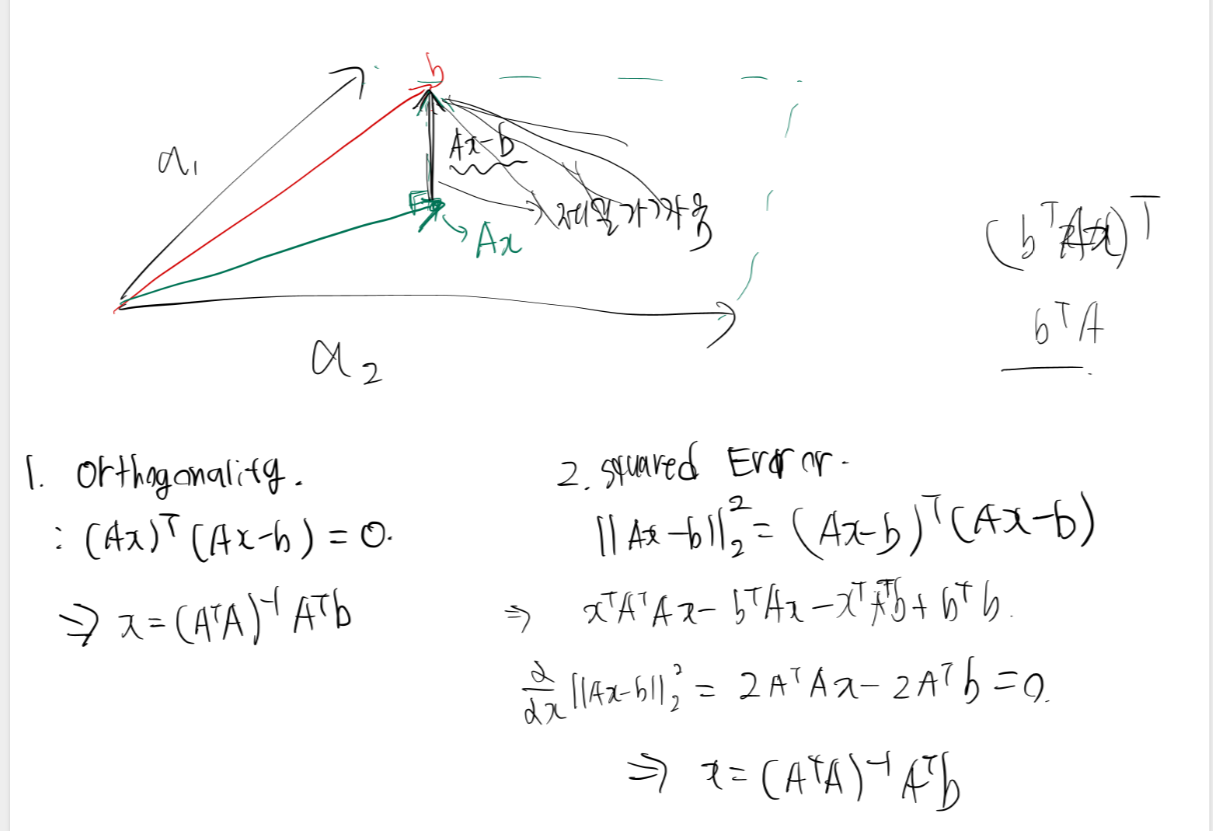 b
a₁
Ax-b
제일 가까움
Ax
a₂
bᵀA
1. Orthogonality.
: (Ax)ᵀ(Ax-b) = 0.
⇒ x = (AᵀA)⁻¹Aᵀb
2. squared Error.
||Ax-b||₂² = (Ax-b)ᵀ(Ax-b)
⇒ xᵀAᵀAx - bᵀAx - xᵀAᵀb + bᵀb.
d/dx ||Ax-b||₂² = 2AᵀAx - 2Aᵀb = 0.
⇒ x = (AᵀA)⁻¹Aᵀb